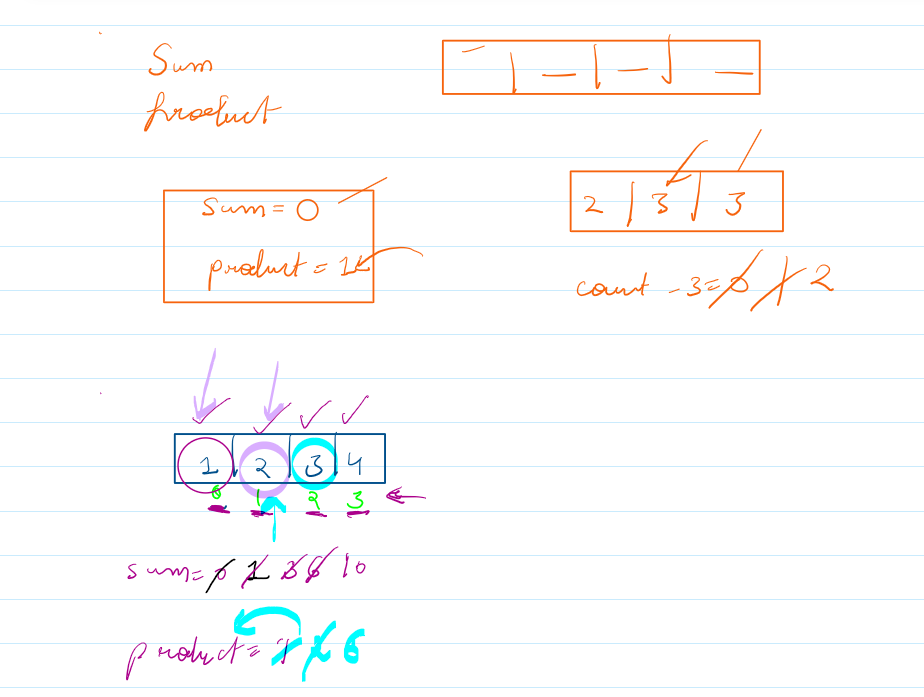 Sum
product
sum = 0
product = 1
2 | 3 | 3
count - 3 = 0 1 2
1 2 3 4
0 1 2 3
sum = 0 1 3 6 10
product = 1 2 6